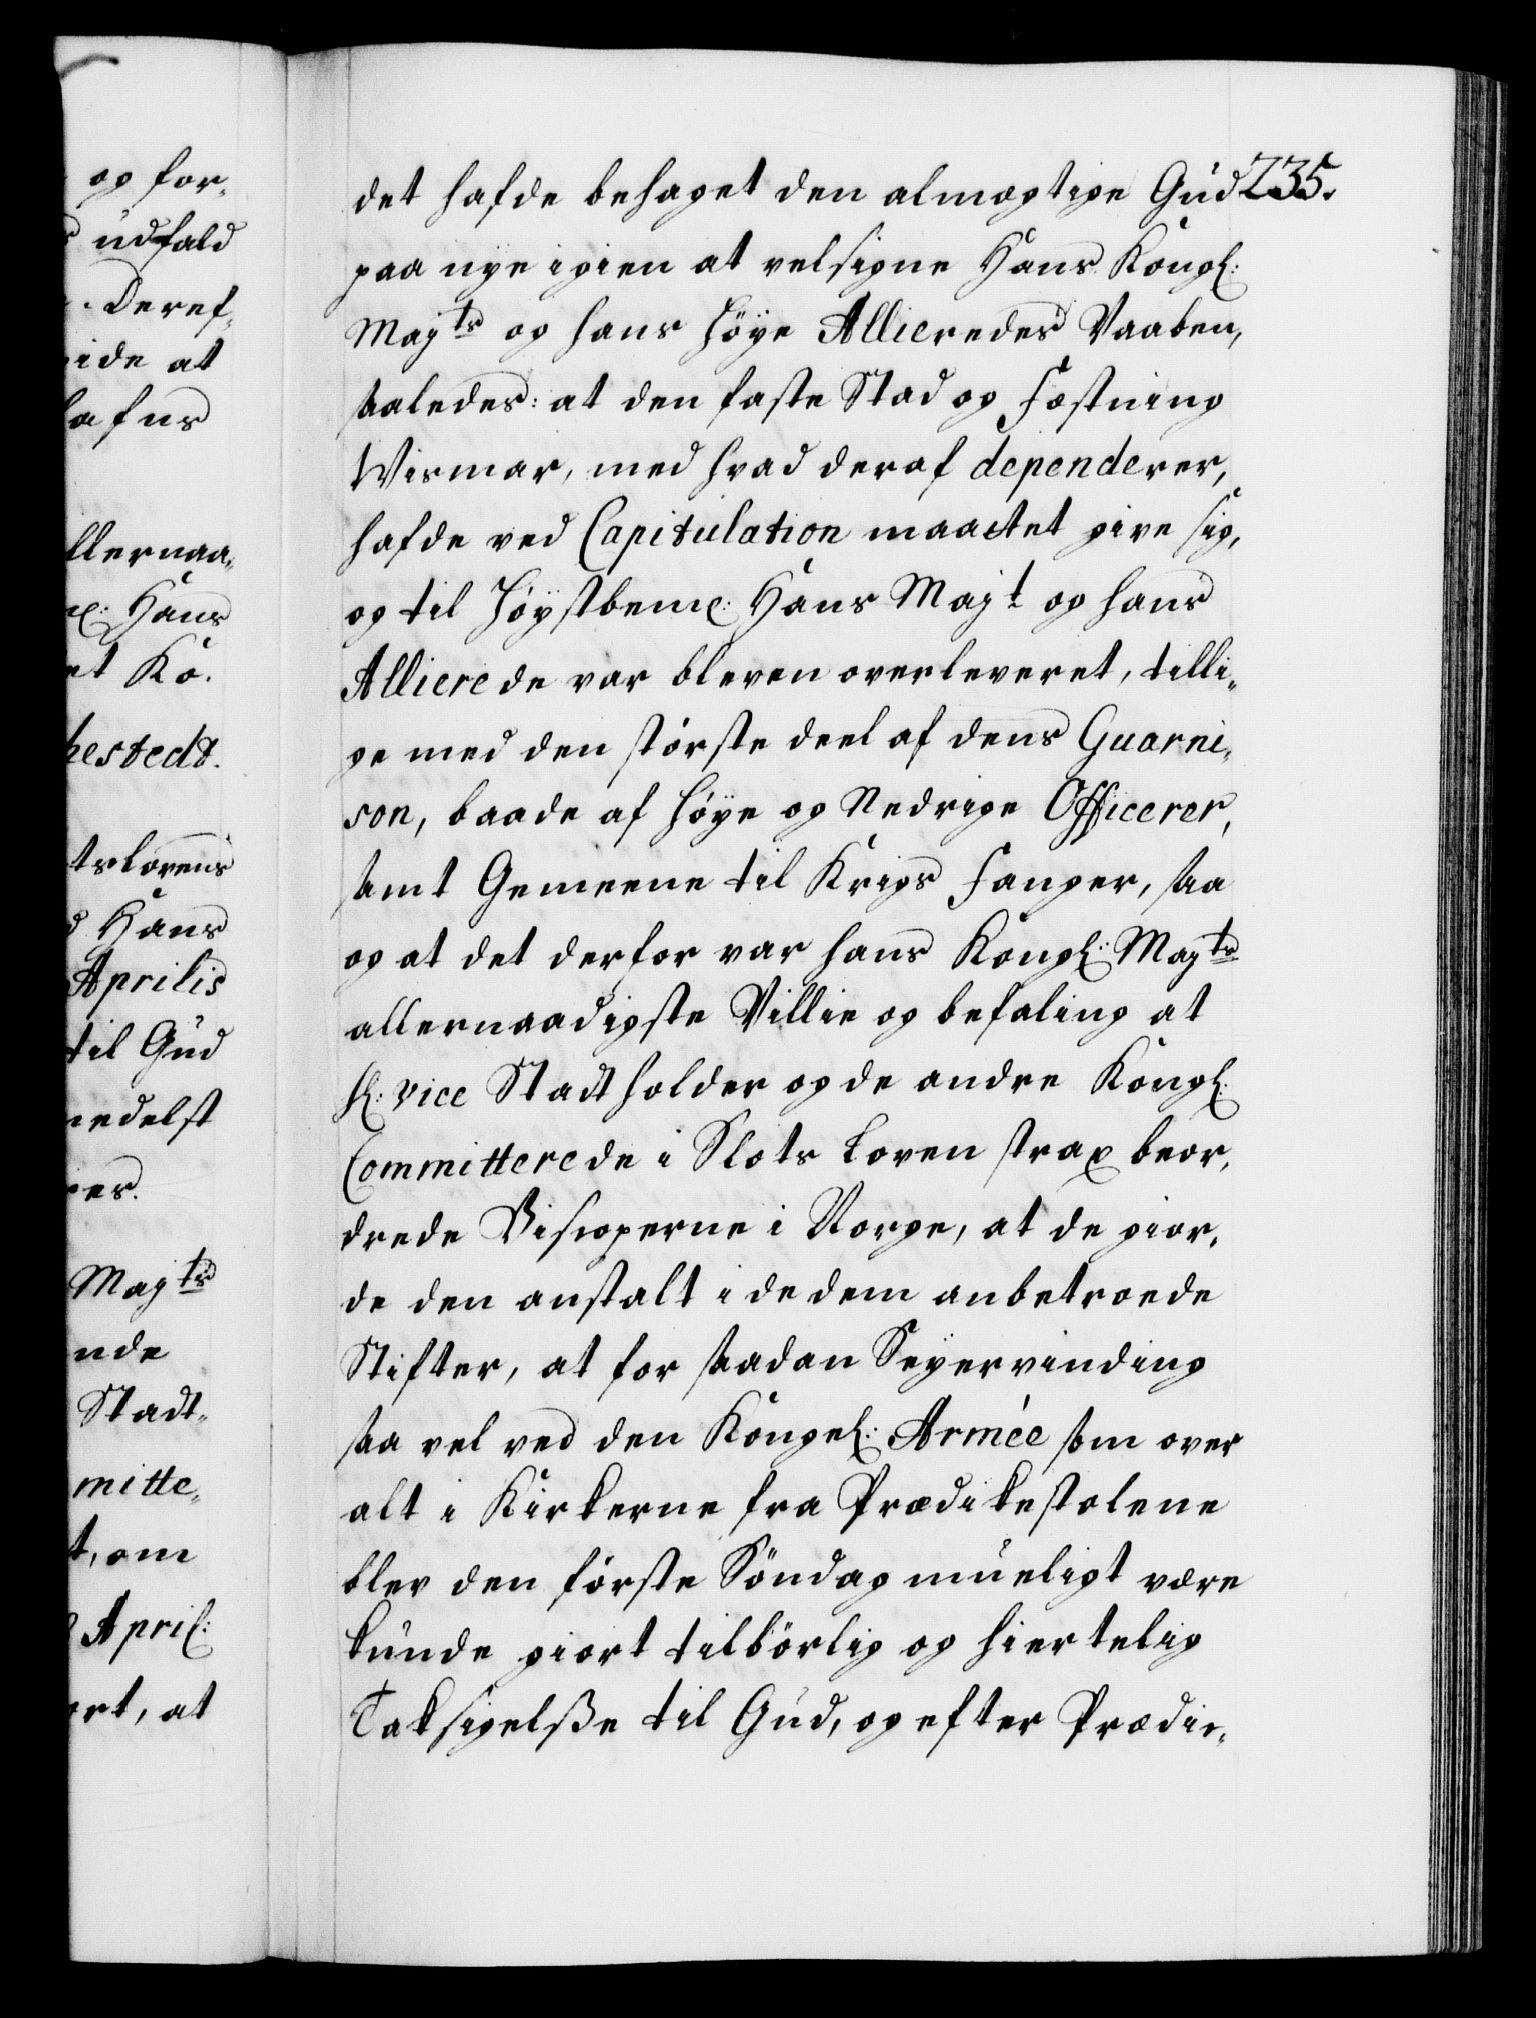 og for„
udfald
Deref„
ide at
afns
llernaa„
Hans
et Ko.
hestedt.
tsLovens
Hans
Aprilis
til Gud
medelst
er.
Majts
nde
Stadt„
mitte„
t, om
April:
ort, at
235.
det hafde behaget den almægtige Gud
paa nye igien at velsigne Hans Kongl:
Majts og hans Høye Allieredes Vaaben,
saaledes: at den faste Stad og Fæstning
Wismar, med hvad deraf dependerer,
hafde ved Capitulation maattet give sig,
og til Høystbemt: Hans Majt og hans
Allierede var bleven overleveret, tilli„
ge med den største deel af dens Guarni„
son, baade af høye og Nedrige Officerer,
samt Gemeene til Krigs Fanger, saa
og at det derfor var hans Kongl: Majts
allernaadigste Villie og befaling at
H: vice Stadtholder og de andre Kongl:
Committerede i Slots Loven strax beor„
drede Biscoperne i Norge, at de gior„
de den anstalt i de dem anbetroede
Stifter, at for saadan Seyervinding
saa vel ved den Kongel: Armée som over
alt i Kirkerne fra Prædikestolene
blev den første Søndag mueligt være
kunde giort tilbørlig og hiertelig
Taksigelsße til Gud, og efter Prædic„